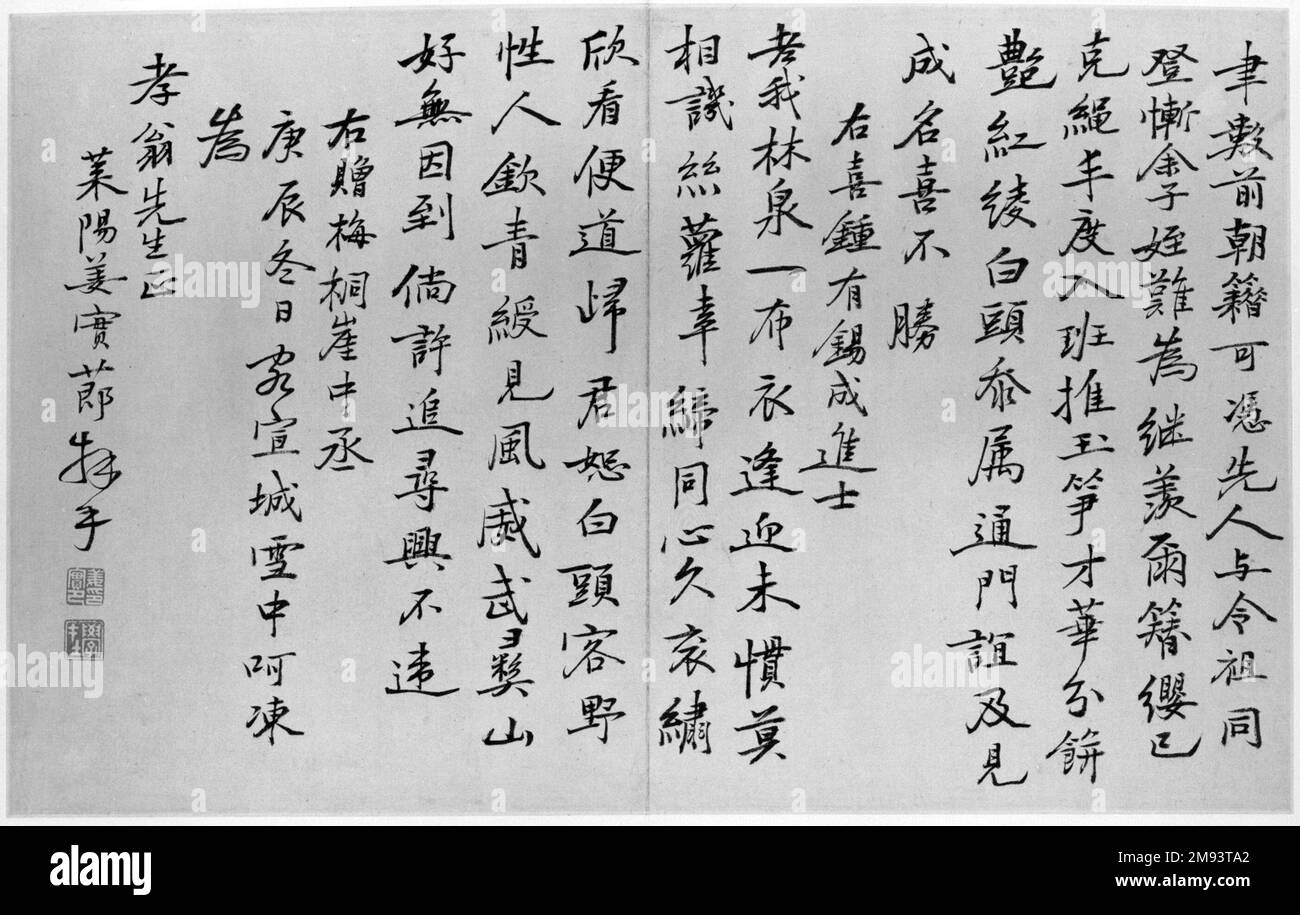 數前朝籍可憑先人与令祖同
登慚余子姪難為継羨爾簪纓已
克繩丰度入班推玉笋才華分餅
艷紅綾白頭忝属通門誼及見
成名喜不勝
右喜鍾有錫成進士
老我林泉一布衣逢迎未慣莫
相譏絲蘿幸締同心久衮繡
欣看便道歸君恕白頭客野
性人欽青綬見風威武彛山
好無因到倘許追尋興不違
右贈梅桐崖中丞
庚辰冬日客宣城雪中呵凍
為
孝翁先生正
萊陽姜實節拜手
alamy
Image ID: 2M93TA2
www.alamy.com